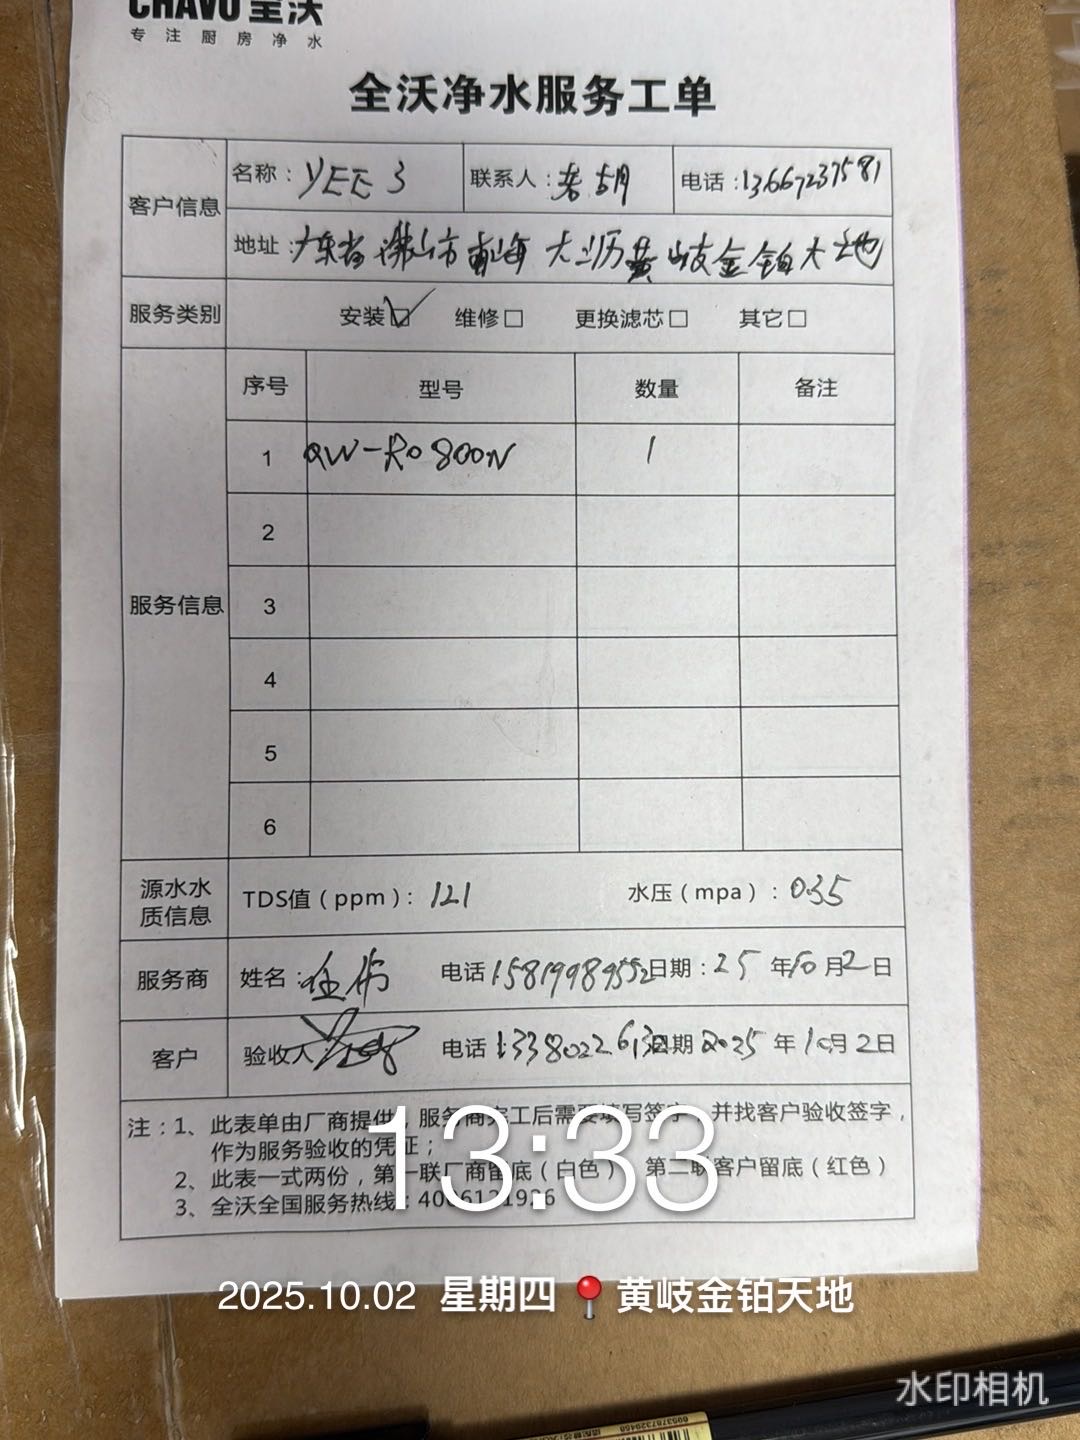 CHAVO 全沃
专注厨房净水
全沃净水服务工单
客户信息 名称：YEE 3 联系人：老胡 电话：13667237581
地址：广东省佛山市南海大沥黄岐金铂大地
服务类别 安装☑ 维修□ 更换滤芯□ 其它□
服务信息 序号 型号 数量 备注
1 QW-RO 800N 1
2
3
4
5
6
源水水质信息 TDS值（ppm）：121 水压（mpa）：0.35
服务商 姓名： 电话：15819989552 日期：25年10月2日
客户 验收人 电话：1338022613 日期 2025年10月2日
注：1、此表单由厂商提供，服务商完工后需要填写签字，并找客户验收签字，
作为服务验收的凭证；
2、此表一式两份，第一联厂商留底（白色） 第二联客户留底（红色）
3、全沃全国服务热线：4006121926
13:33
2025.10.02 星期四 📍黄岐金铂天地
水印相机